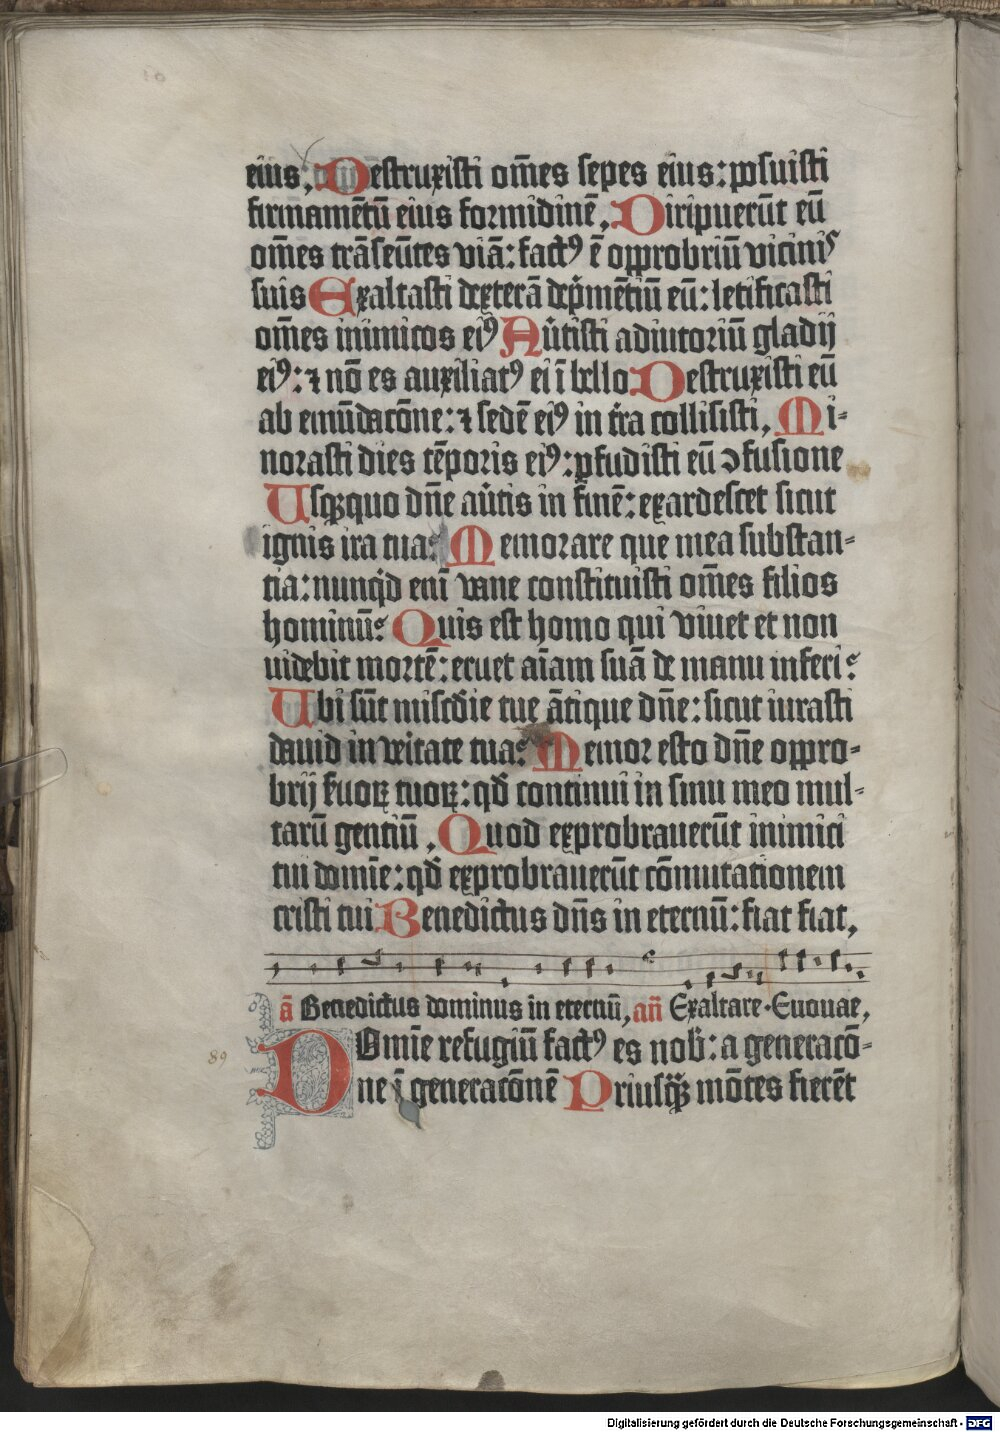 eius, Destruxisti om̄es sepes eius: posuisti
firmamētū eius formidinē, Diripuerūt eū
om̄es trāseūtes viā: factꝰ ē opprobriū vicinis
suis Exaltasti dexterā dep̄mētiū eū: letificasti
om̄es inimicos eiꝰ Aūtisti adiutoriū gladij
eiꝰ: ⁊ nō es auxiliatꝰ ei ī bello Destruxisti eū
ab emūdacōne: ⁊ sedē eiꝰ in t̄ra collisisti, Mi-
norasti dies tēporis eiꝰ: ꝑfudisti eū ↄfusione
Usq̄quo dn̄e aūtis in finē: exardescet sicut
ignis ira tua: Memorare que mea substan-
tia: nunq̄d enī vane constituisti om̄es filios
hominū: Quis est homo qui viuet et non
uidebit mortē: eruet aīam suā de manu inferi:
Ubi sūt misc̄die tue ātique dn̄e: sicut iurasti
dauid in v̄itate tua: Memor esto dn̄e oppro-
brij s̄uoꝝ tuoꝝ: qd̄ continui in sinu meo mul-
tarū gentiū, Quod exprobrauerūt inimici
tui domīe: qd̄ exprobrauerūt cōmutationem
cristi tui Benedictus dn̄s in eternū: fiat fiat,
ā Benedictus dominus in eternū, an̄ Exaltare. Euouae,
Domīe refugiū factꝰ es nob̄: a generacō-
89
ne ī generacōnē Priusq̄ꝫ mōtes fierēt
Digitalisierung gefördert durch die Deutsche Forschungsgemeinschaft - DFG